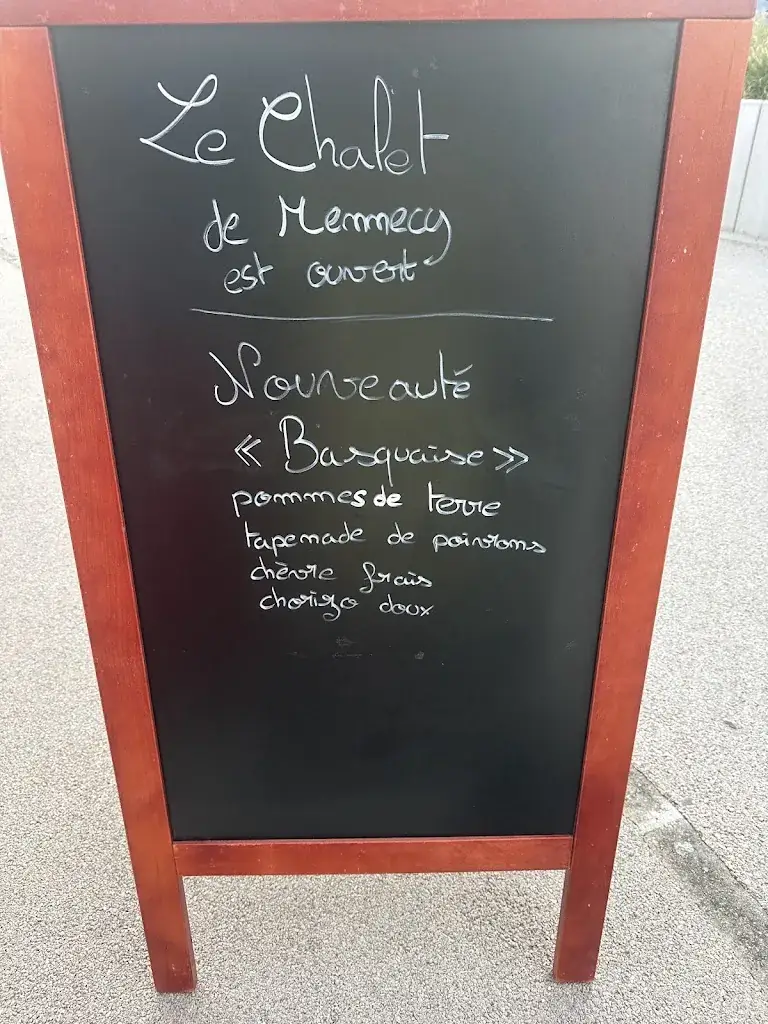 Le Chalet
de Mennecy
est ouvert
Nouveauté
« Basquaise »
pommes de terre
tapenade de poivrons
chèvre frais
chorizo doux